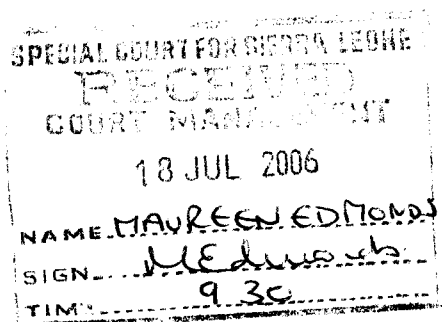 SPECIAL COURT FOR SIERRA LEONE
RECEIVED
COURT MANAGEMENT
18 JUL 2006
NAME MAUREEN EDMONDS
SIGN MEdmonds
TIME 9 30